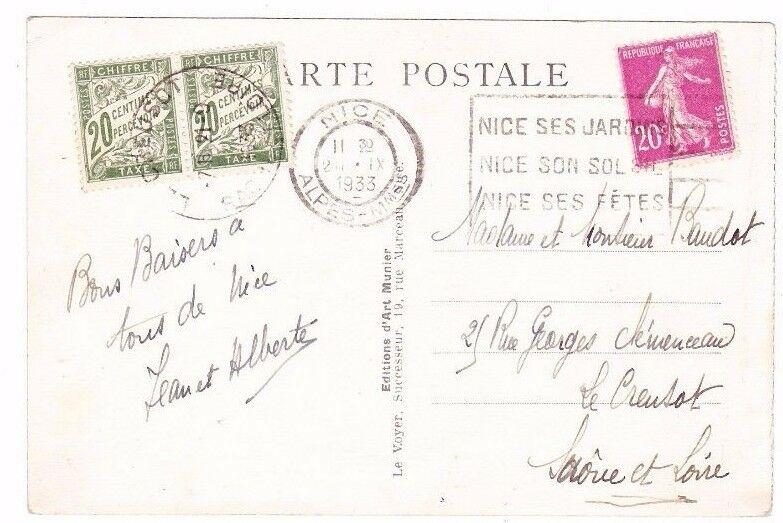 CARTE POSTALE
RF CHIFFRE RF
20 CENTIMES
A PERCEVOIR
TAXE
RF CHIFFRE RF
20 CENTIMES
A PERCEVOIR
TAXE
LE CREUSOT
NICE
11 30
IX
1933
ALPES-MMES
NICE SES JARDINS
NICE SON SOLEIL
NICE SES FÊTES
REPUBLIQUE FRANÇAISE
20c
POSTES
Bons Baisers a
tous de Nice
Jean et Alberte
Editions d'Art Munier
Le Voyer, Successeur, 19, rue Marceau, Nice.
Madame et Monsieur Baudot
25 Rue Georges Clémenceau
Le Creusot
Saône et Loire